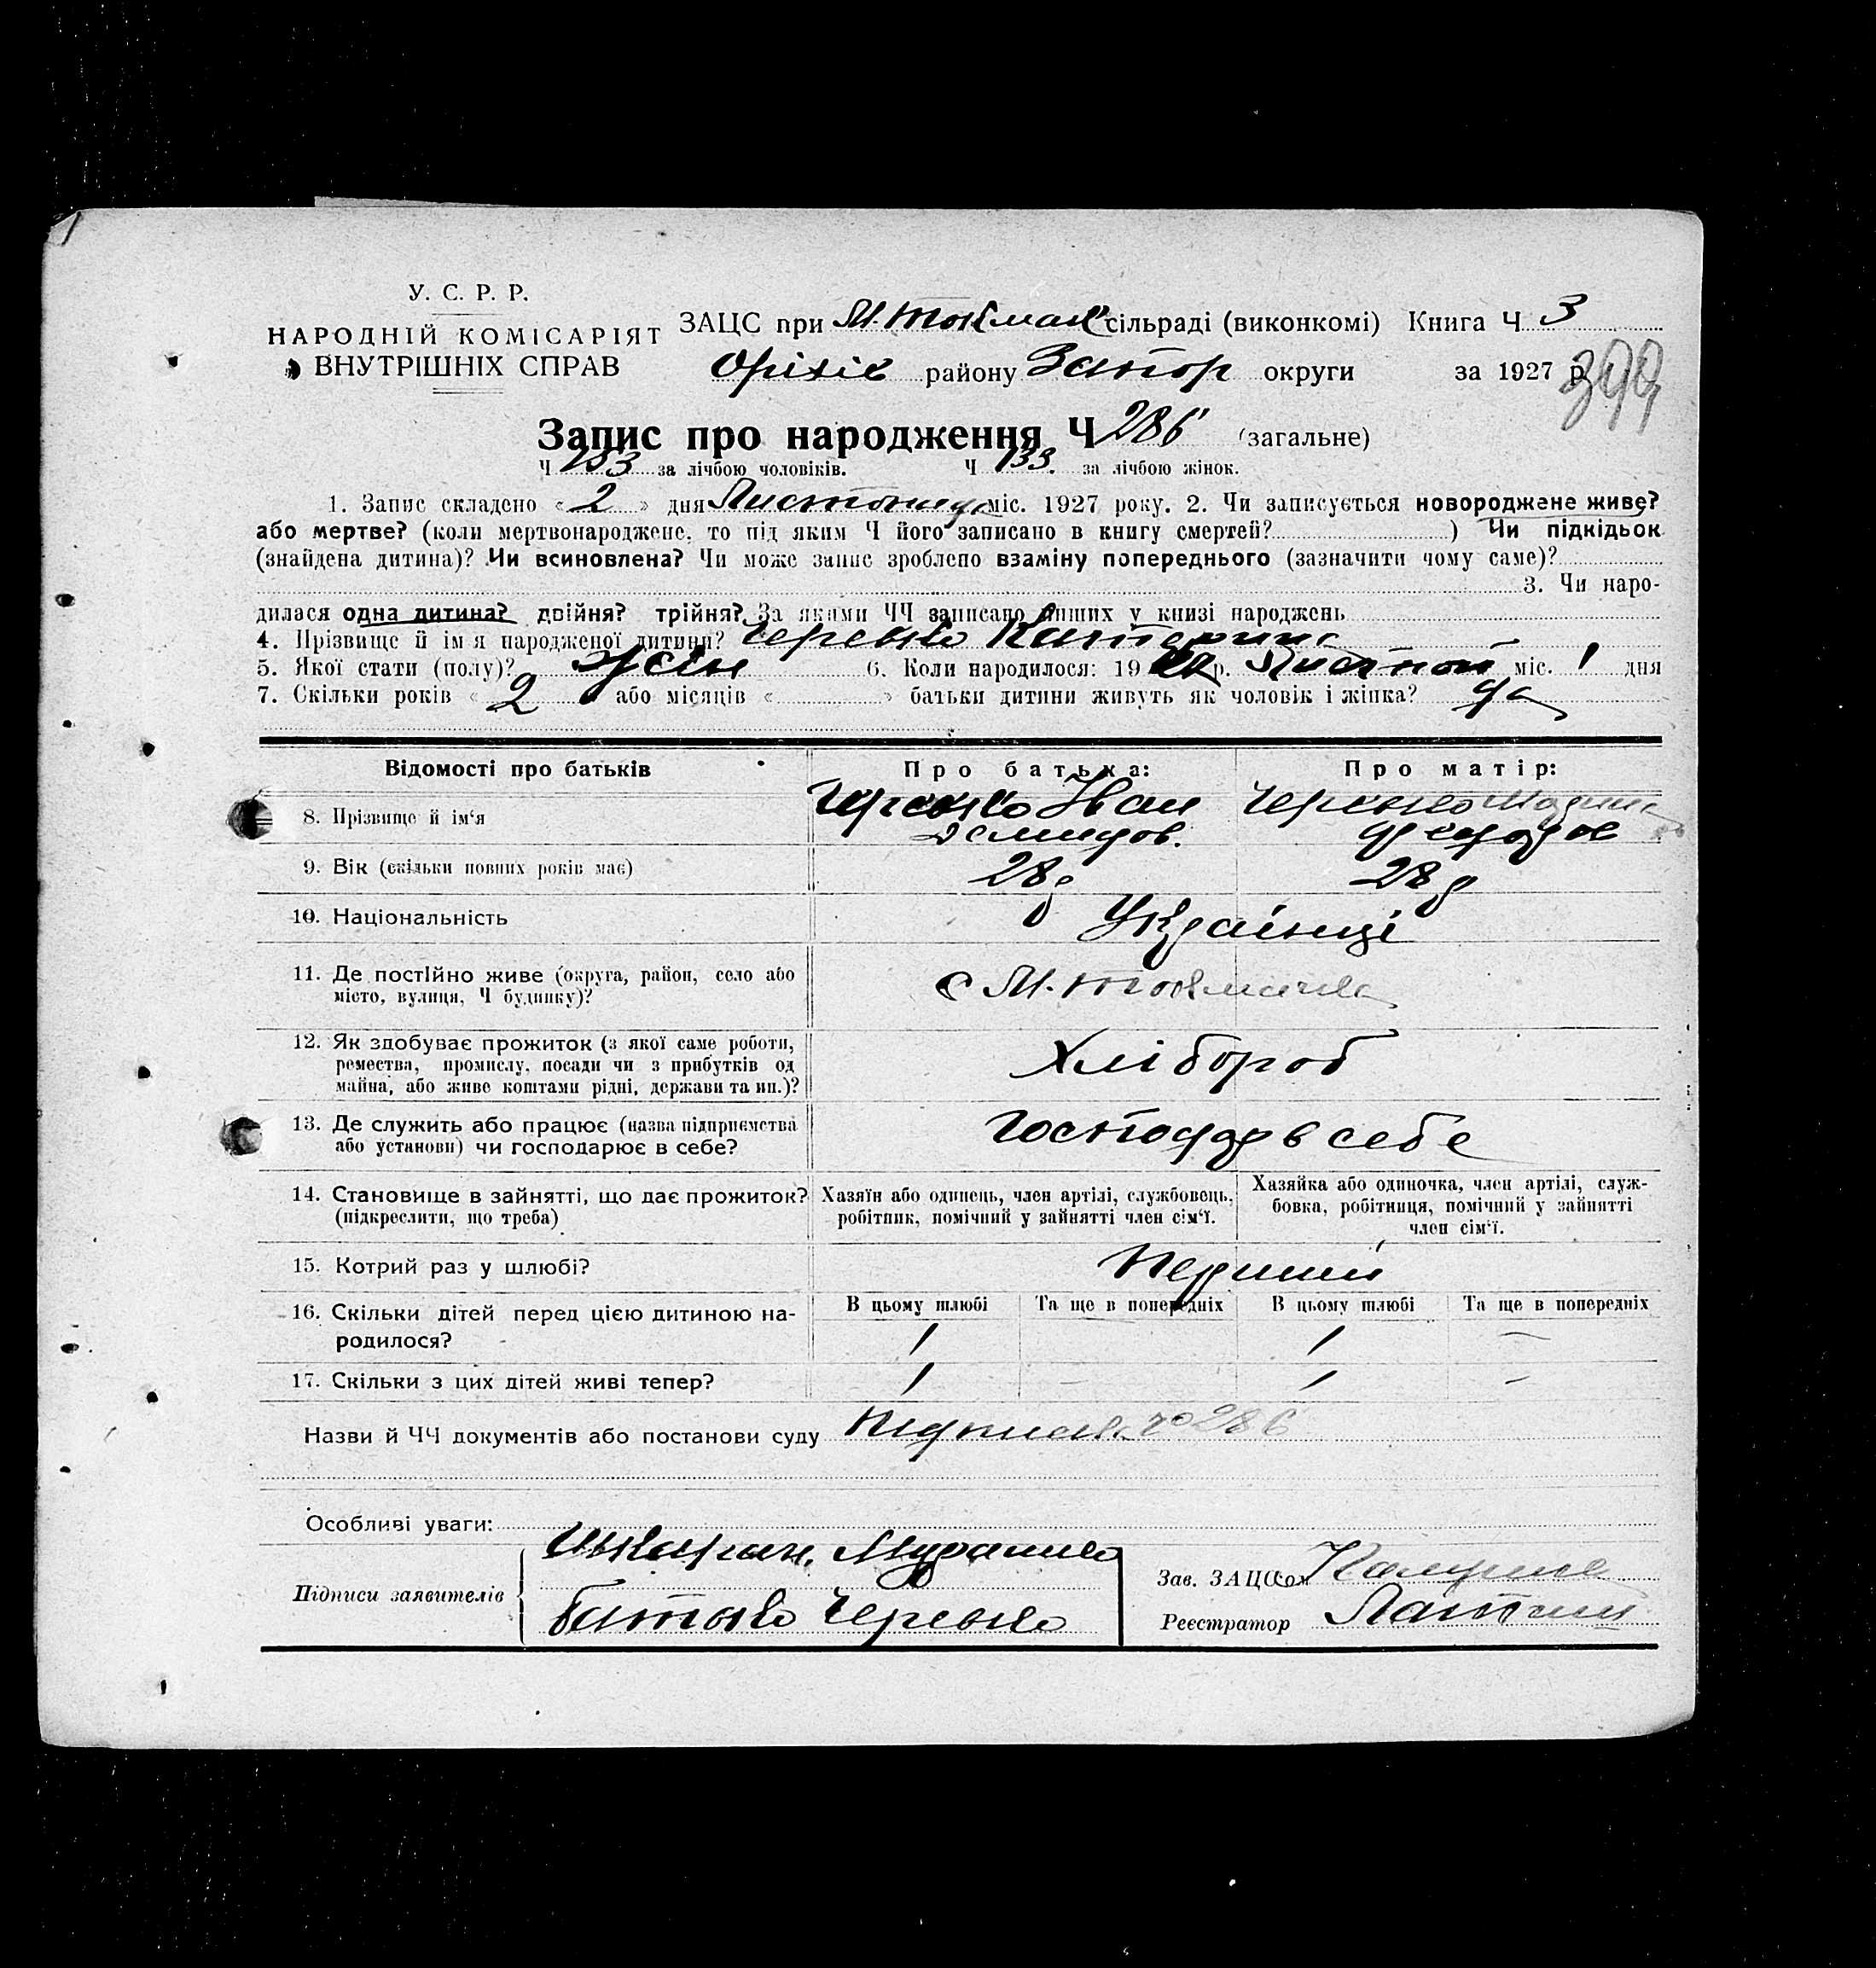 У. С. Р. Р.
НАРОДНІЙ КОМІСАРІЯТ
ВНУТРІШНІХ СПРАВ
ЗАЦС при М. Токмач сільраді (виконкомі) Книга Ч 3
Оріхів району Запор округи за 1927 р.
399
Запис про народження Ч 286 (загальне)
Ч 153 за лічбою чоловіків. Ч 133. за лічбою жінок.
1. Запис складено « 2 » дня Листопад міс. 1927 року. 2. Чи записується новороджене живе?
або мертве? (коли мертвонароджене, то під яким Ч його записано в книгу смертей? ) Чи підкідьок
(знайдена дитина)? Чи всиновлена? Чи може запис зроблено взаміну попереднього (зазначити чому саме)?
3. Чи наро-
дилася одна дитина? двійня? трійня? За якими ЧЧ записано инших у книзі народжень
4. Прізвище й ім'я народженої дитини? Черенко Катерина
5. Якої стати (полу)? жін 6. Коли народилося: 19 р. Листоп міс. 1 дня
7. Скільки років « 2 або місяців « » батьки дитини живуть як чоловік і жінка? да
Відомості про батьків Про батька: Про матір:
8. Прізвище й ім'я Черенко Іван Черенко
Демидов. Федоров
9. Вік (скільки повних років має) 28 р 28 р
10. Національність Українці
11. Де постійно живе (округа, район, село або
місто, вулиця, Ч будинку)? с М. Токмачка
12. Як здобуває прожиток (з якої саме роботи,
ремества, промислу, посади чи з прибутків од
майна, або живе коштами рідні, держави та ин.)? Хлібороб
13. Де служить або працює (назва підприємства
або установи) чи господарює в себе? Господар в себе
14. Становище в зайнятті, що дає прожиток?
(підкреслити, що треба)
Хазяїн або одинець, член артілі, службовець,
робітник, помічний у зайнятті член сім'ї.
Хазяйка або одиночка, член артілі, служ-
бовка, робітниця, помічний у зайнятті
член сім'ї.
15. Котрий раз у шлюбі? Перший
16. Скільки дітей перед цією дитиною на-
родилося?
В цьому шлюбі Та ще в попередніх В цьому шлюбі Та ще в попередніх
1 1 —
17. Скільки з цих дітей живі тепер? 1 — 1 —
Назви й ЧЧ документів або постанови суду 286
Особливі уваги:
Підписи заявителів
батько Черенко
Зав. ЗАЦСом
Реєстратор